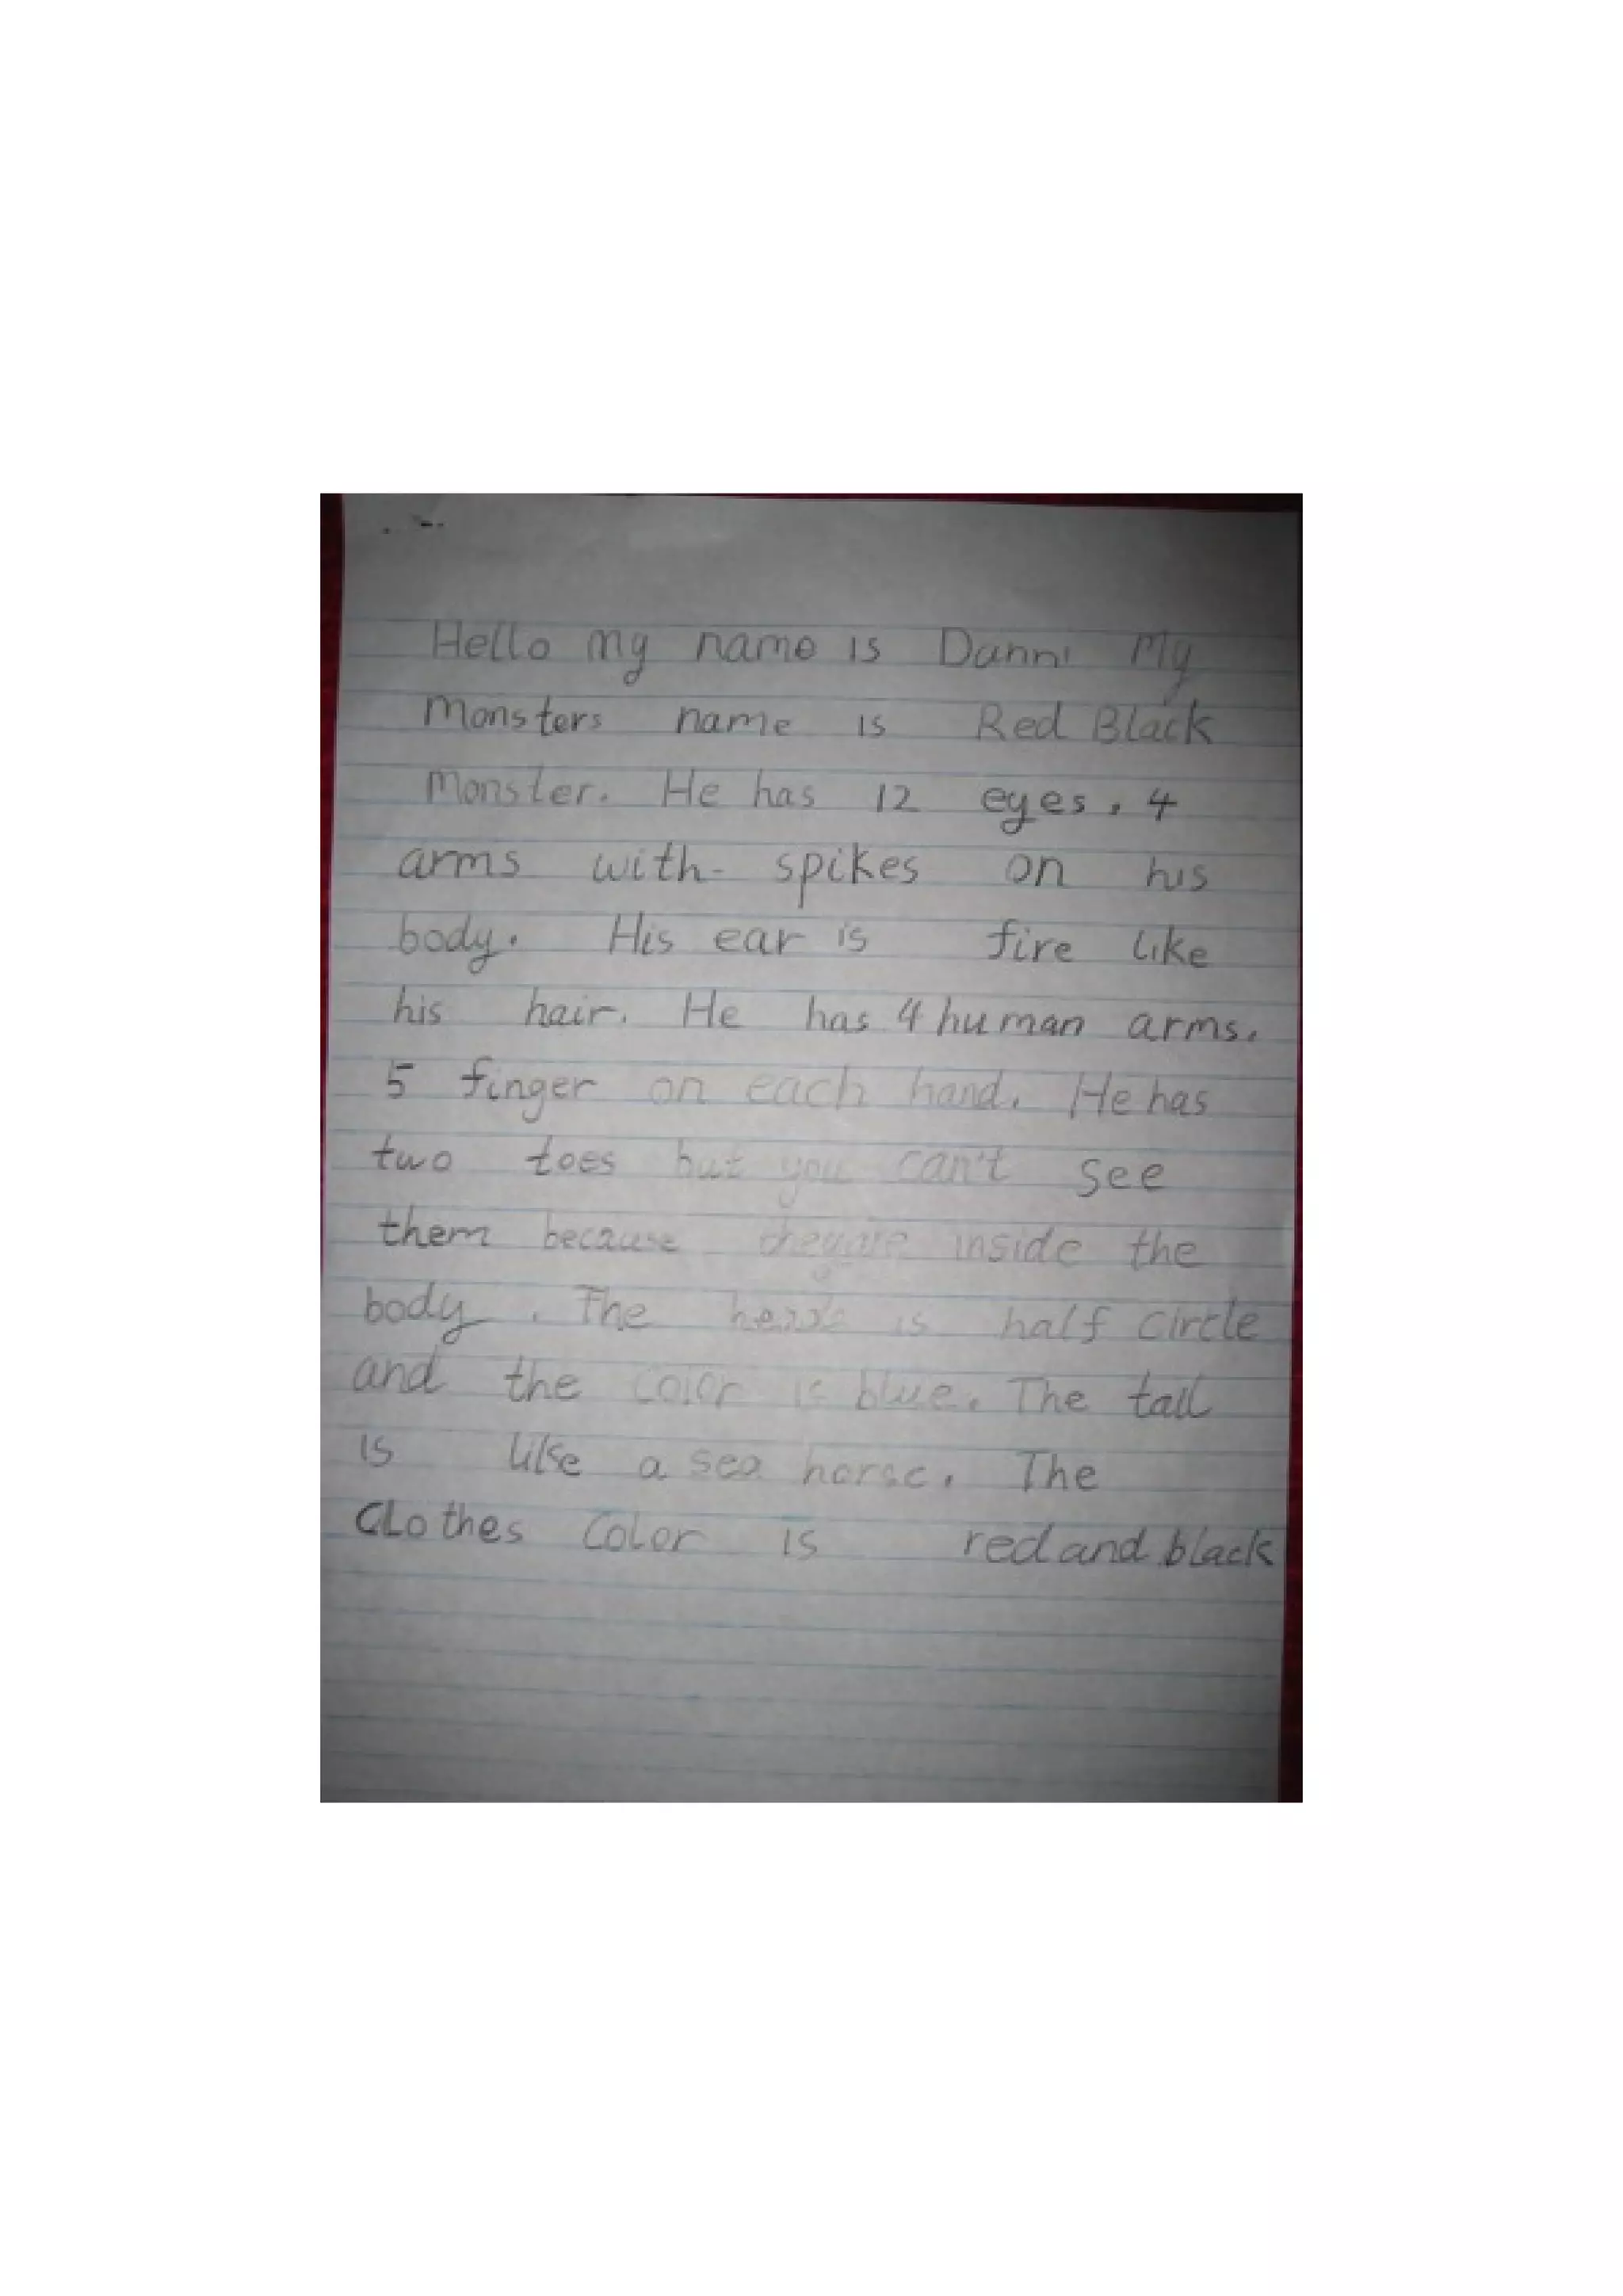 Hello my name is Danni My
monsters name is Red Black
monster. He has 12 eyes, 4
arms with spikes on his
body. His ear is fire like
his hair. He has 4 human arms.
5 finger on each hand. He has
two toes but you can't see
them because they are inside the
body. The is half circle
and the color is blue. The tail
is like a sea horse. The
Clothes Color is red and black